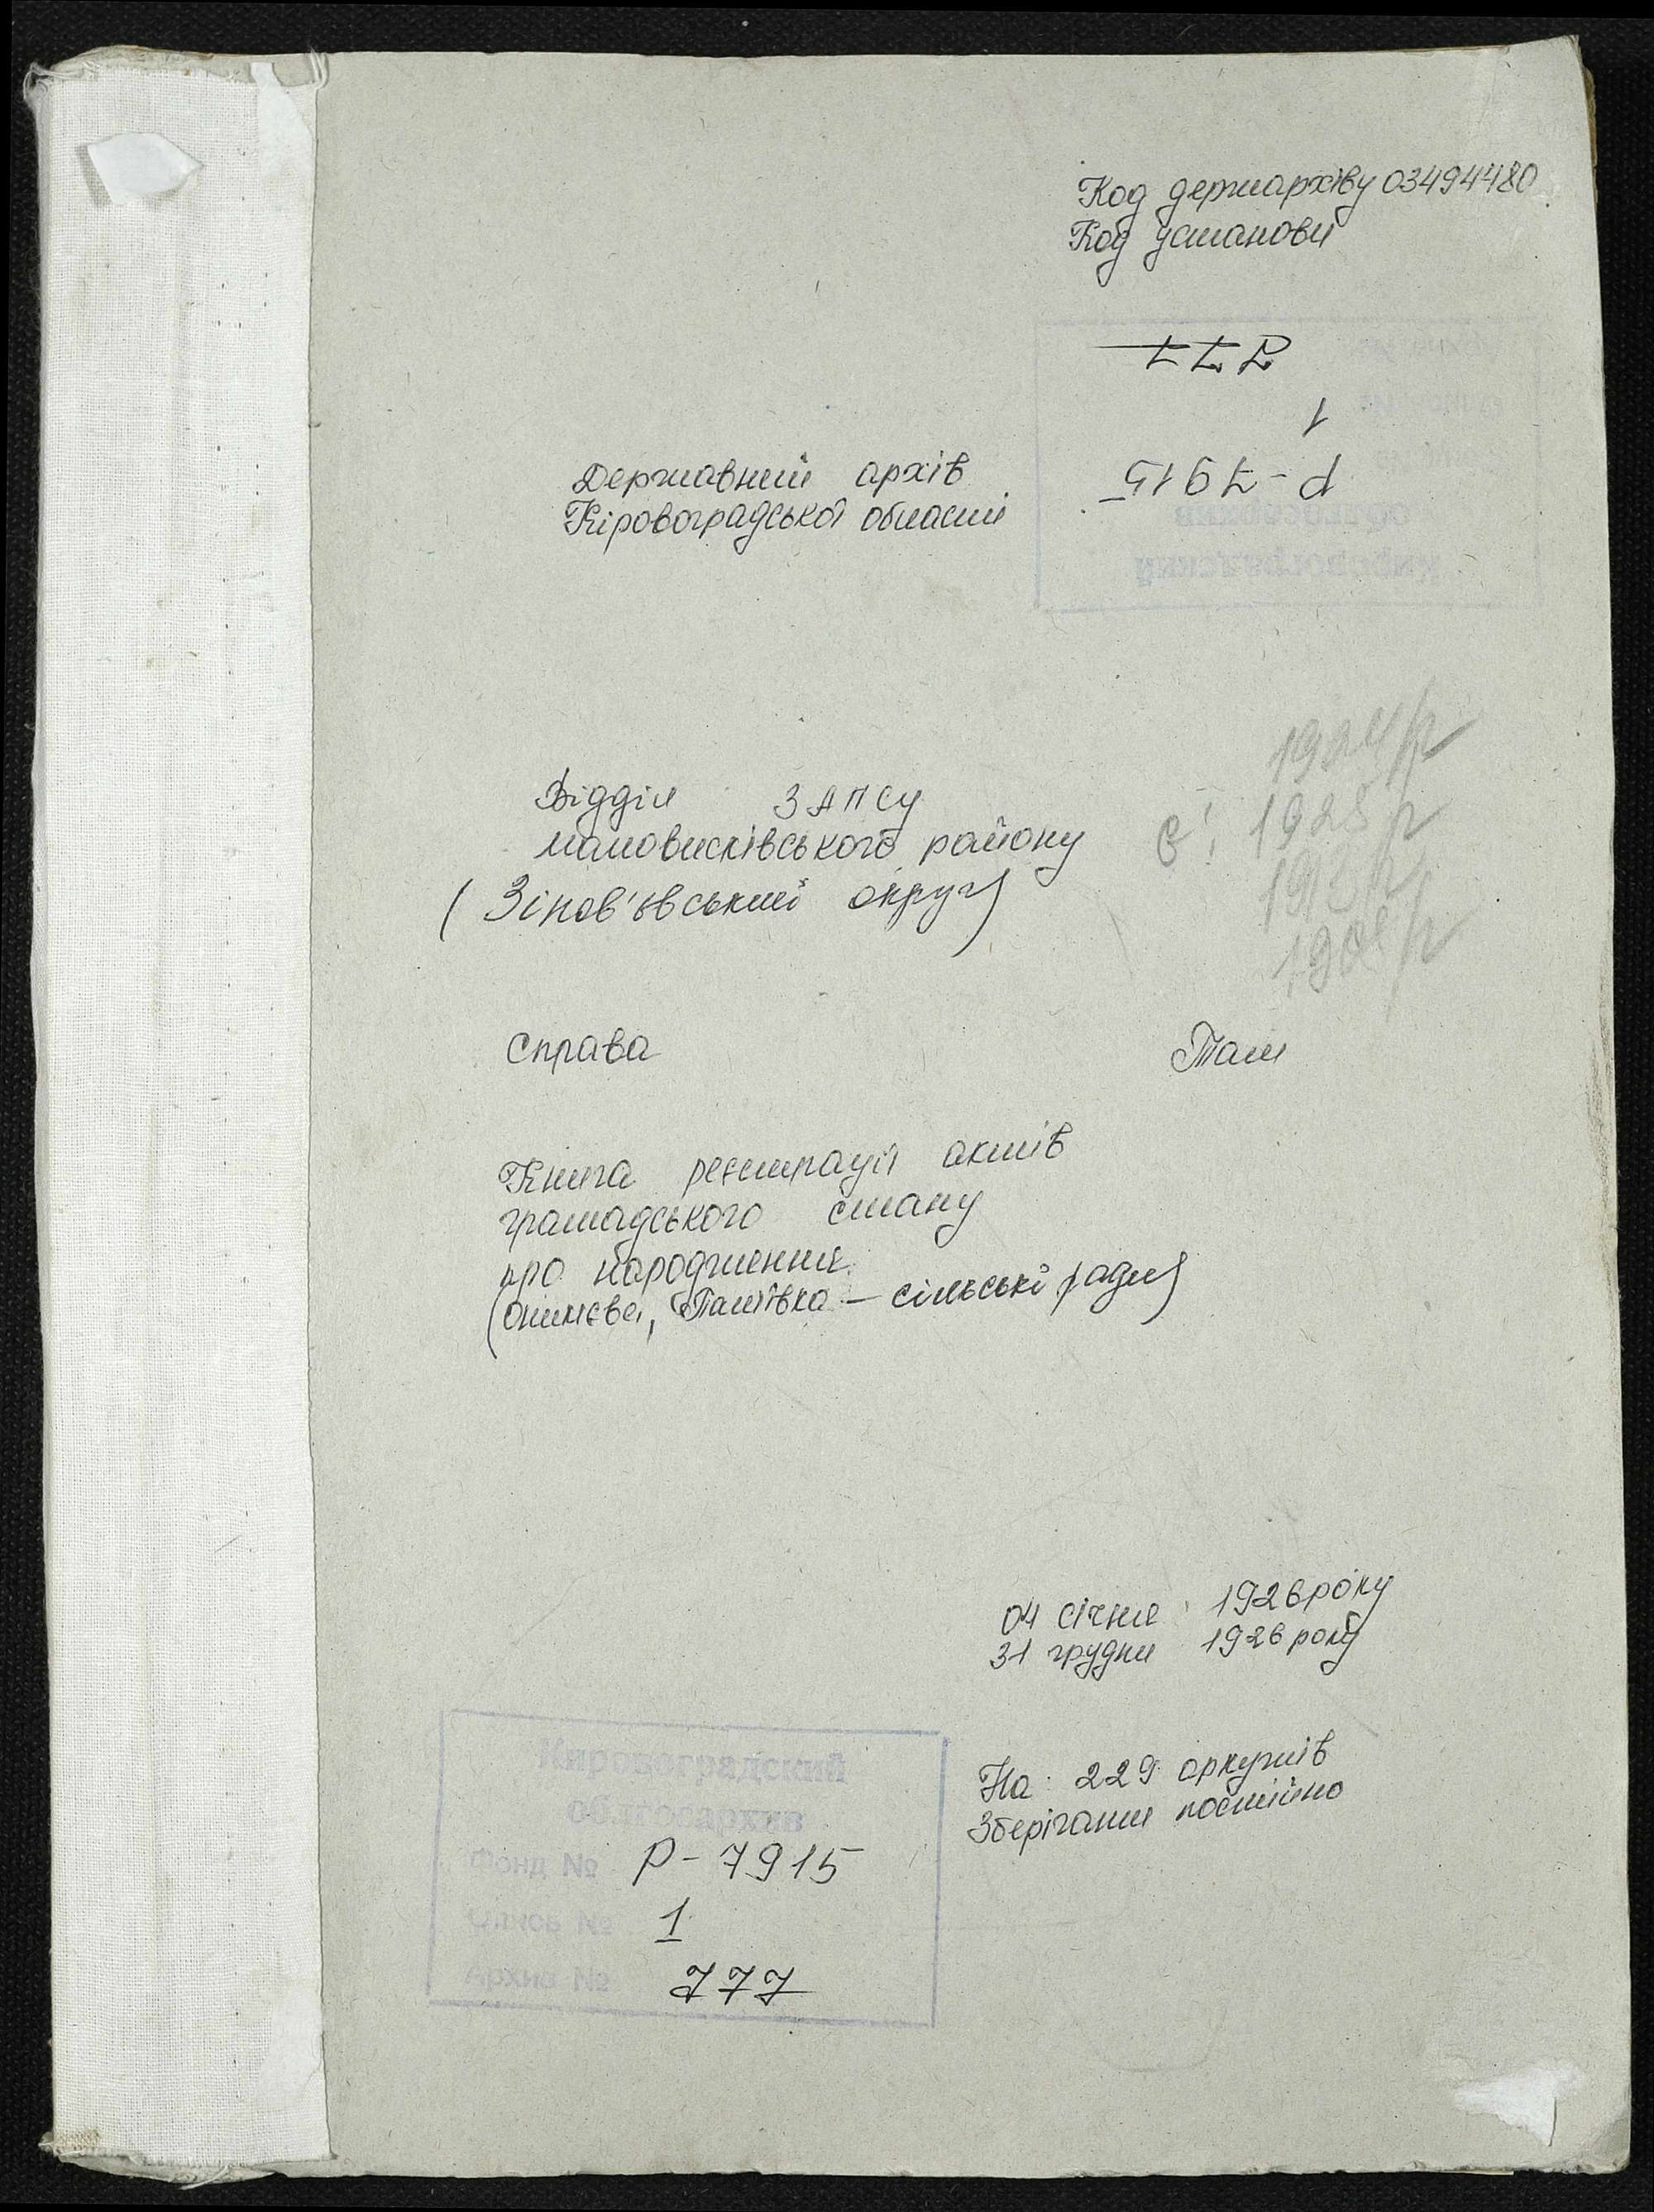 Код держархіву 03494480
Код установи
777
1
Р-7915
Опись №
облгосархив
Кировоградский
Державний архів
Кіровоградської області
1924 р
Є: 1925 р
Відділ ЗАГСу
маловисківського району
(Зінов'ївський округ)
Справа Том
Книга реєстрації актів
громадського стану
про народження
(Оникієва, Паліївка – сільські ради)
04 січня 1926 року
31 грудня 1926 року
На 229 аркушів
Зберігати постійно
Кировоградский
облгосархив
Фонд № Р-7915
Опись № 1
Архив № 777